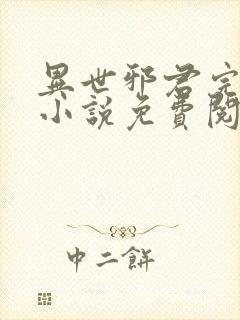 異世邪君完
小說免費閱
中二餅